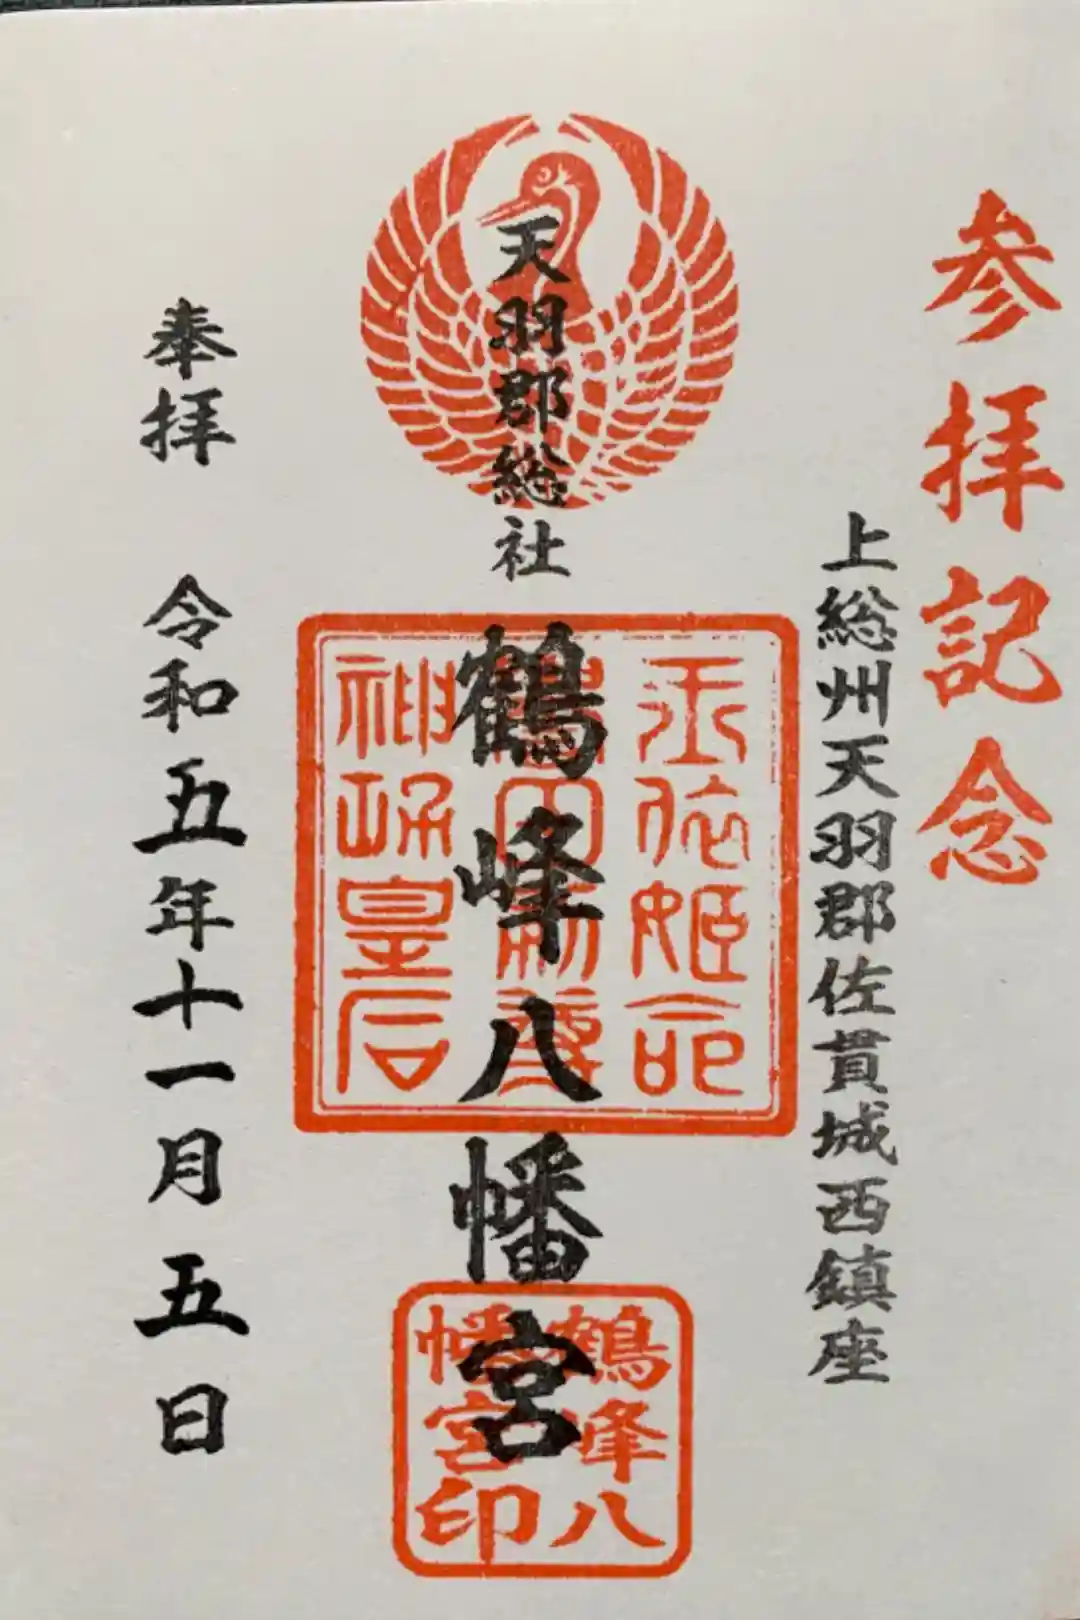 参拝記念
上総州天羽郡佐貫城西鎮座
天羽郡総社
鶴峰八幡宮
玉依姫命
神功皇后
鶴峰八
幡宮印
奉拝 令和五年十一月五日